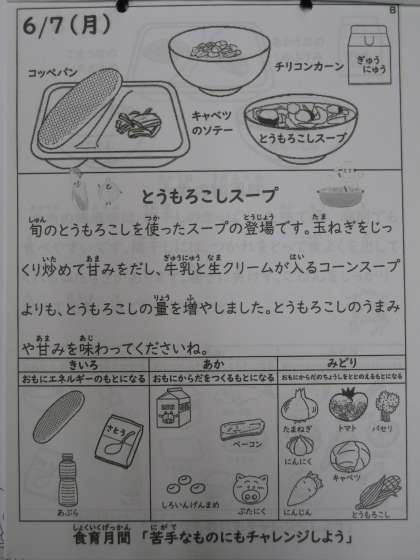 B
6/7(月)
コッペパン
チリコンカーン
ぎゅう
にゅう
キャベツ
のソテー
とうもろこしスープ
とうもろこしスープ
旬のとうもろこしを使ったスープの登場です。玉ねぎをじっ
くり炒めて甘みをだし、牛乳と生クリームが入るコーンスープ
よりも、とうもろこしの量を増やしました。とうもろこしのうまみ
や甘みを味わってくださいね。
きいろ あか みどり
おもにエネルギーのもとになる おもにからだをつくるもとになる おもにからだのちょうしをととのえるもとになる
さとう
あぶら
ベーコン
しろいんげんまめ
ぶたにく
たまねぎ
トマト
パセリ
にんにく
キャベツ
にんじん
とうもろこし
食育月間 「苦手なものにもチャレンジしよう」